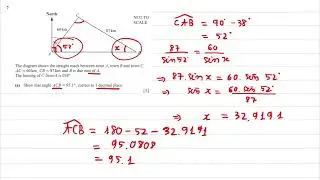 7
North
NOT TO
SCALE
C
60km
87km
52°
x
A
B
The diagram shows the straight roads between town A, town B and town C.
AC = 60km, CB = 87km and B is due east of A.
The bearing of C from A is 038°.
(a) Show that angle ACB = 95.1°, correct to 1 decimal place.
[4]
CAB = 90° - 38°
= 52°
87 / sin 52° = 60 / sin x
⇒ 87.sin x = 60.sin 52°
⇒ sin x = 60.sin 52° / 87
⇒ x = 32.9191
ACB = 180 - 52 - 32.9191
= 95.0808
= 95.1